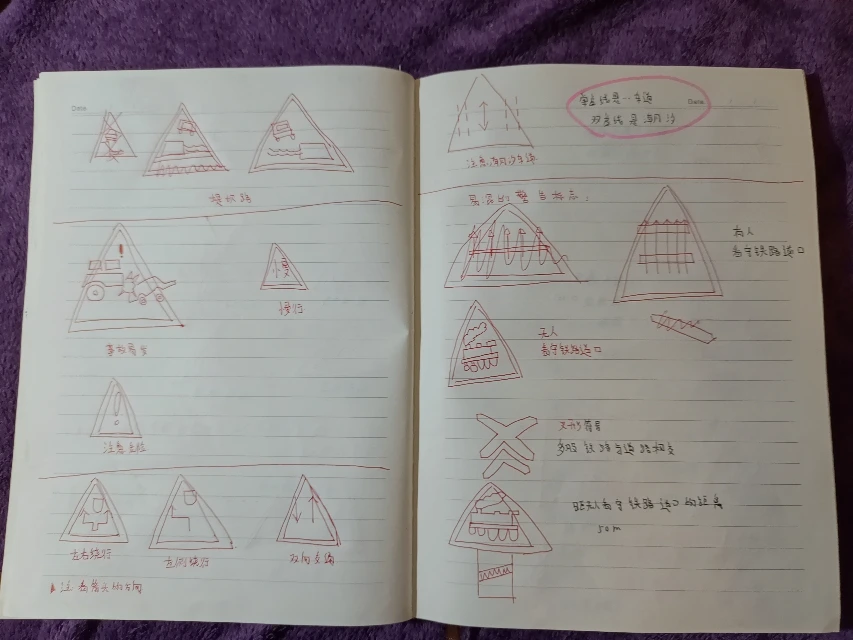 Date
堤坝路
慢
慢行
事故易发
注意危险
左右绕行
左侧绕行
双向交通
注 看箭头的方向
Date
单虚线是一车道
双虚线是潮汐
注意潮汐车道
易混的警告标志:
有人
看守铁路道口
无人
看守铁路道口
叉形符号
多股铁路与道路相交
距无人看守铁路道口的距离
50m